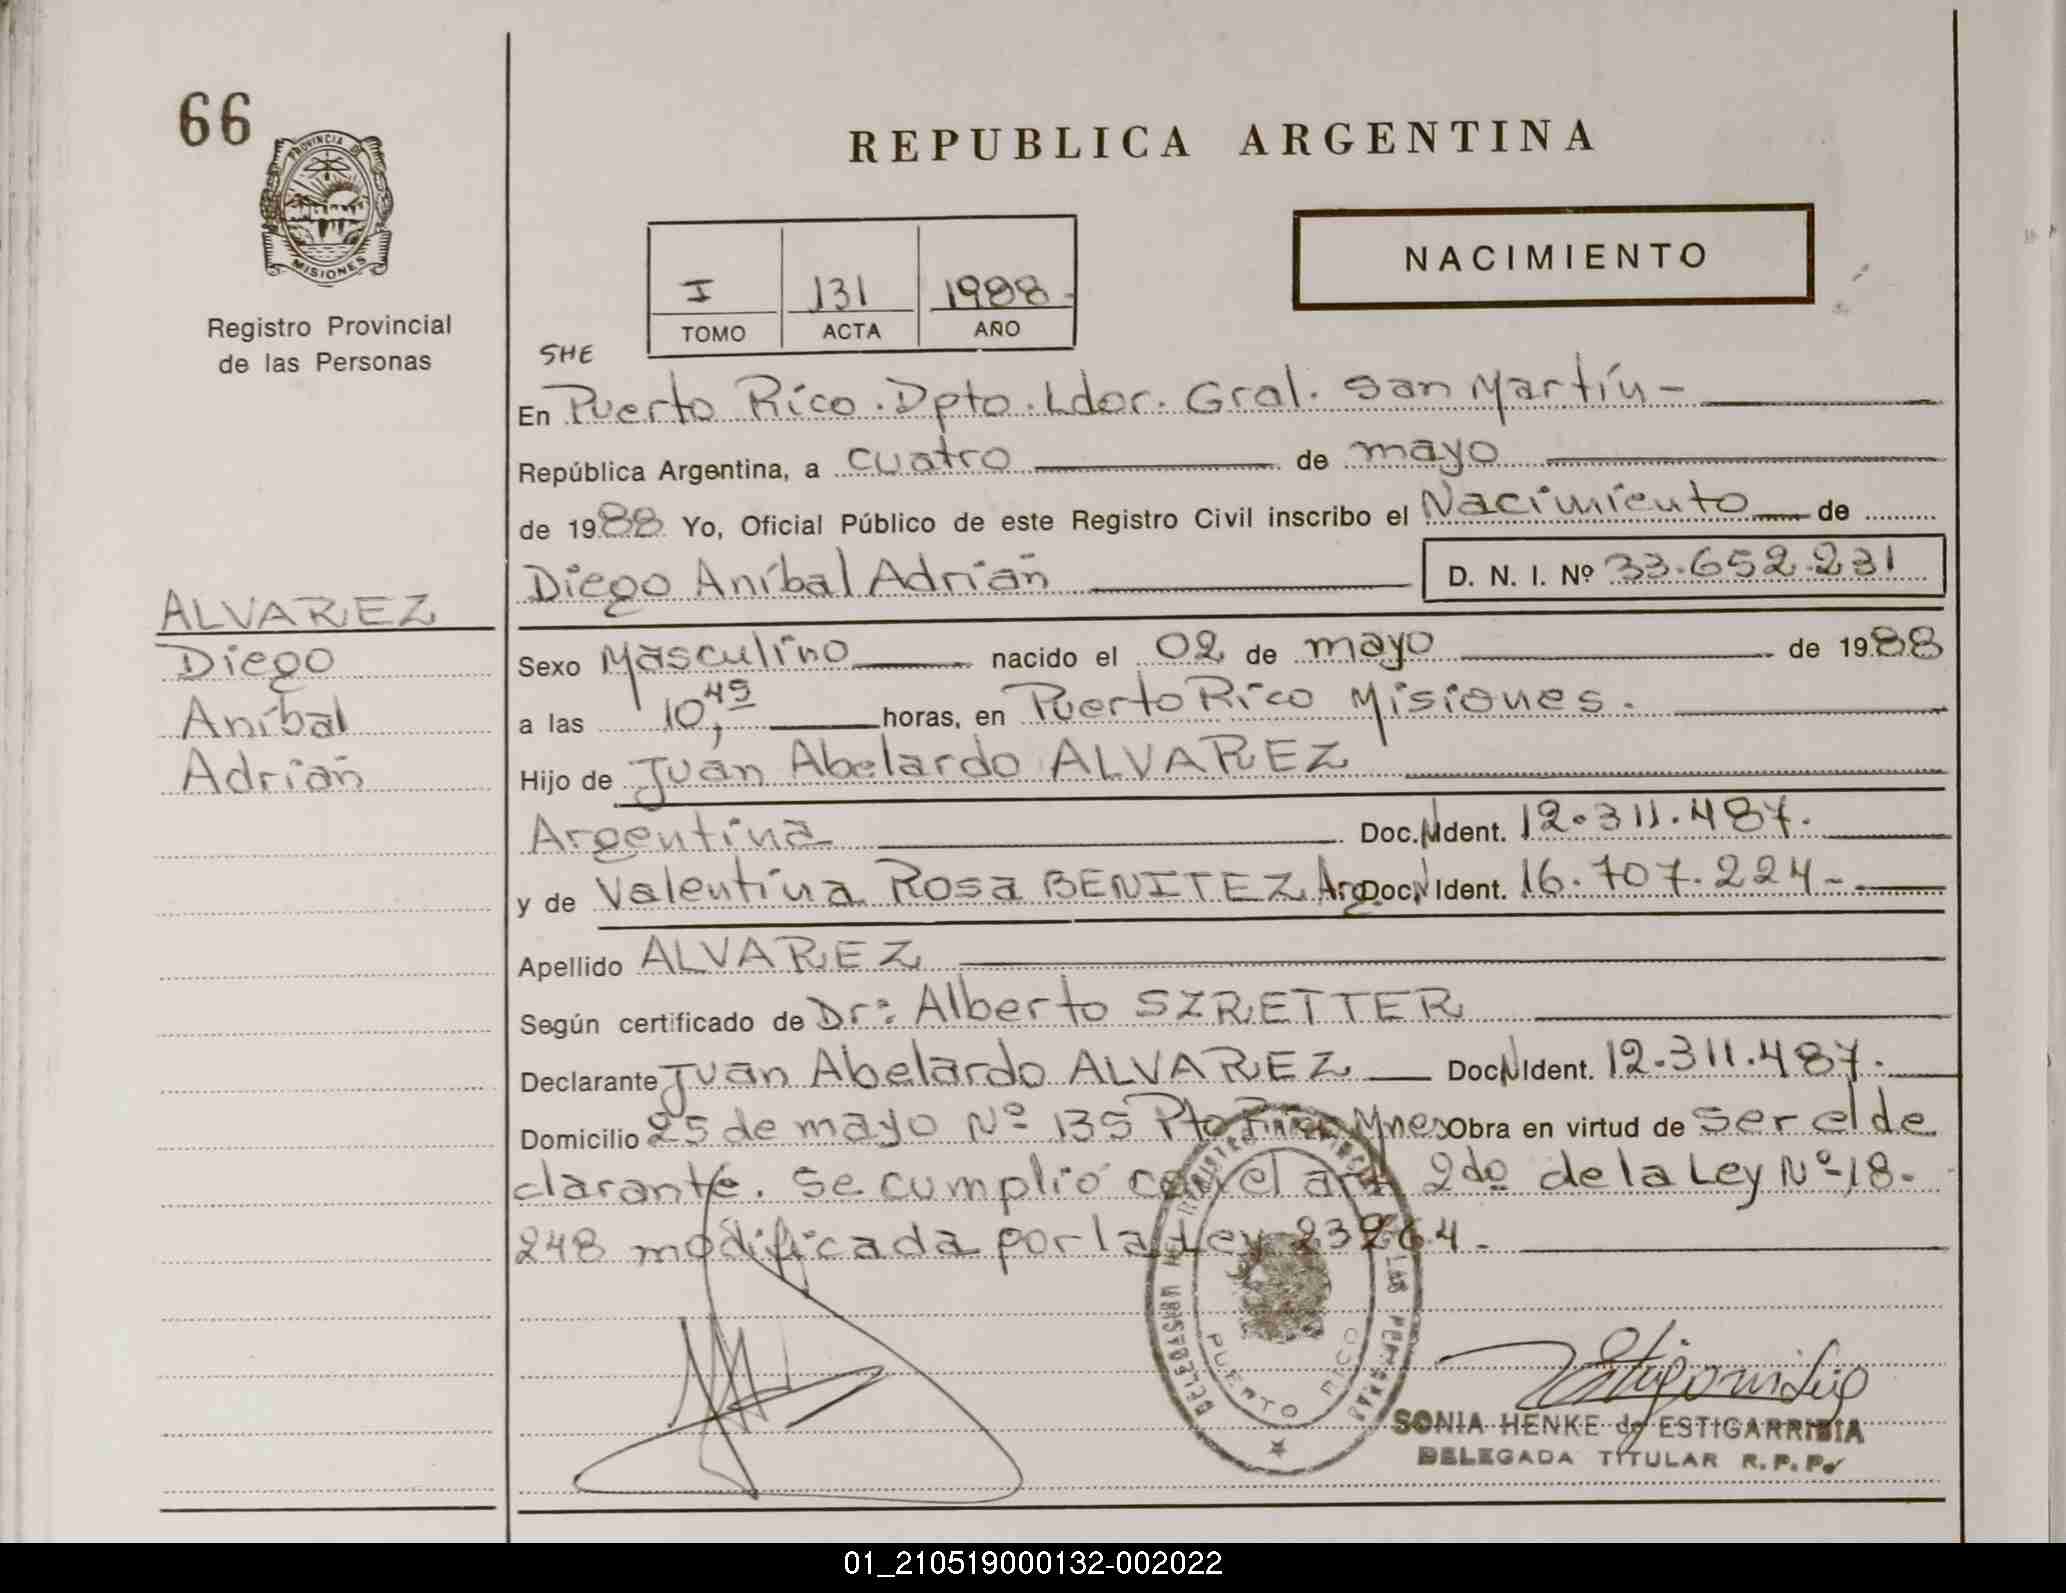 66
PROVINCIA DE
MISIONES
Registro Provincial
de las Personas
REPUBLICA ARGENTINA
NACIMIENTO
I 131 1988
TOMO ACTA AÑO
SHE
En Puerto Rico. Dpto. Ldor. Gral. San Martín -
República Argentina, a cuatro de mayo
de 1988 Yo, Oficial Público de este Registro Civil inscribo el Nacimiento de
Diego Aníbal Adrián D. N. I. Nº 33.652.231
ALVAREZ
Diego
Aníbal
Adrián
Sexo Masculino nacido el 02 de mayo de 1988
a las 10,45 horas, en Puerto Rico Misiones.
Hijo de Juan Abelardo ALVAREZ
Argentina Doc. N Ident. 12.311.487.
y de Valentina Rosa BENITEZ Arg. Doc. N Ident. 16.707.224-
Apellido ALVAREZ
Según certificado de Dr: Alberto SZRETTER
Declarante Juan Abelardo ALVAREZ Doc N Ident. 12.311.487.
Domicilio 25 de mayo Nº 135 Pto Rico Mnes Obra en virtud de ser el de
clarante. Se cumplió con el art 2do de la Ley Nº 18.
248 modificada por la Ley 23264.
PUERTO RICO
SONIA HENKE de ESTIGARRIBIA
DELEGADA TITULAR R. P. P.
01_210519000132-002022